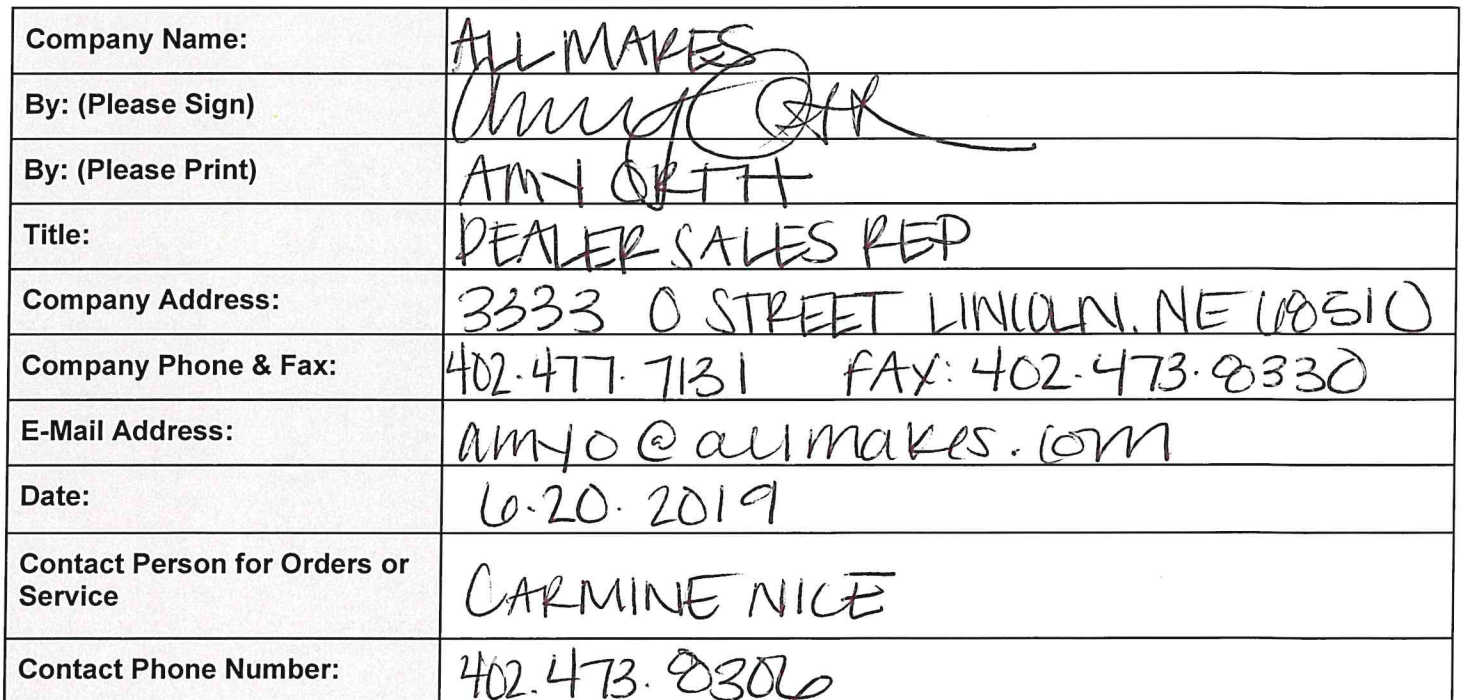 Company Name: ALL MAKES
By: (Please Sign) Amy Orth
By: (Please Print) AMY ORTH
Title: DEALER SALES REP
Company Address: 3333 O STREET LINCOLN, NE 68510
Company Phone & Fax: 402.477.7131 FAX: 402.473.8330
E-Mail Address: amyo@allmakes.com
Date: 6.20.2019
Contact Person for Orders or
Service CARMINE NICE
Contact Phone Number: 402.473.8306